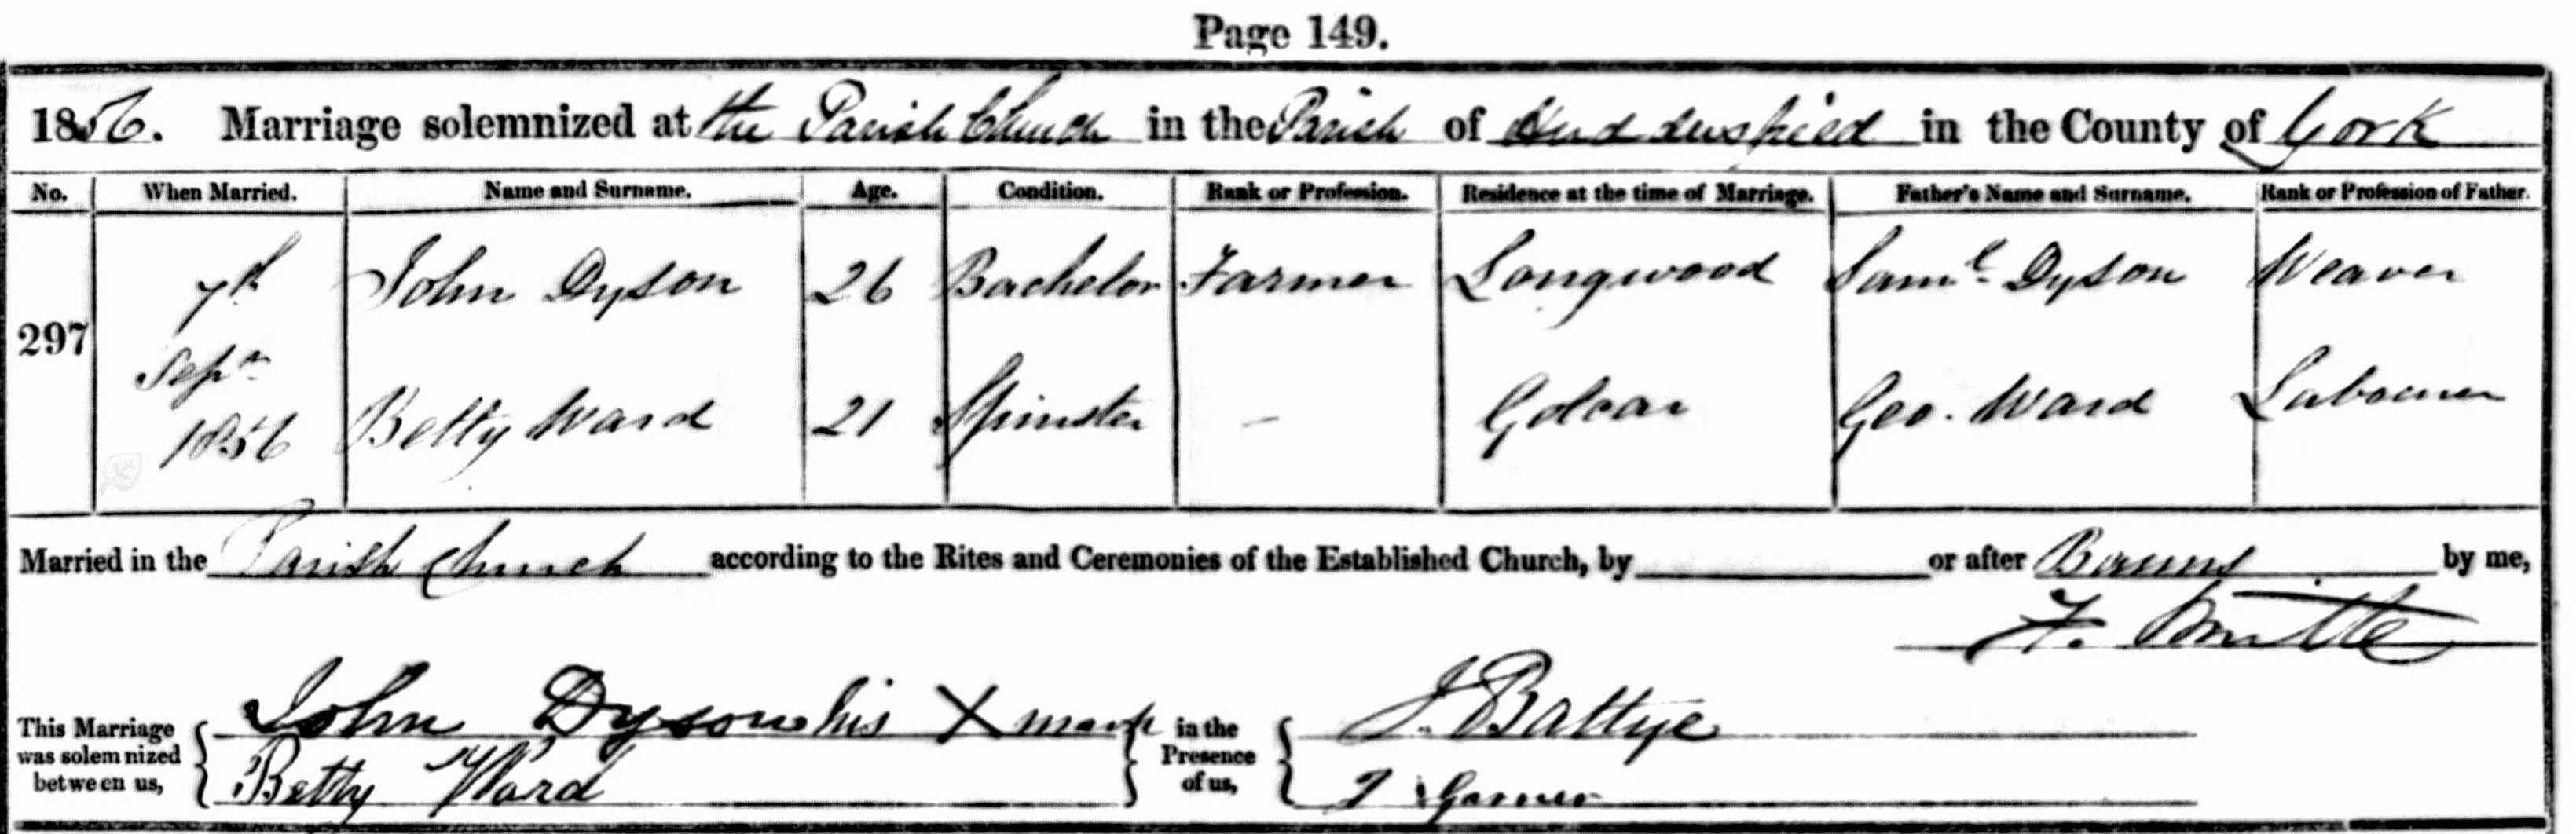 Page 149.
1856. Marriage solemnized at the Parish Church in the Parish of Huddersfield in the County of York
No. When Married. Name and Surname. Age. Condition. Rank or Profession. Residence at the time of Marriage. Father's Name and Surname. Rank or Profession of Father.
297
7th
Sepr
1856
John Dyson 26 Bachelor Farmer Longwood Saml Dyson Weaver
Betty Ward 21 Spinster - Golcar Geo. Ward Labourer
Married in the Parish Church according to the Rites and Ceremonies of the Established Church, by or after Banns by me,
F.
This Marriage was solemnized between us,
John Dyson his X mark
Betty Ward
in the Presence of us,
J. Battye